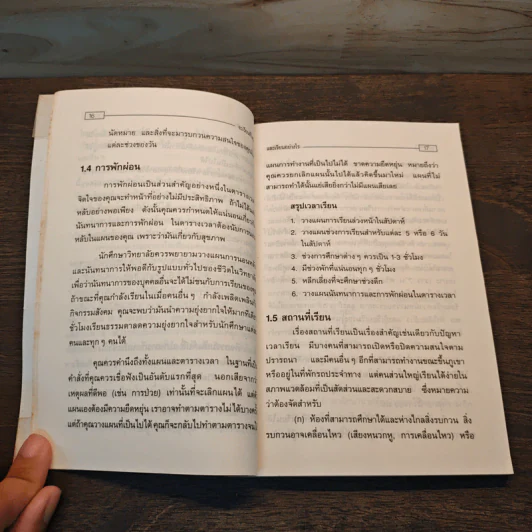 16
นัดหมาย และสิ่งที่จะมารบกวนความสนใจของ
แต่ละช่วงของวัน
1.4 การพักผ่อน
การพักผ่อนเป็นส่วนสำคัญอย่างหนึ่งในตาราง
จิตใจของคุณจะทำหน้าที่อย่างมีประสิทธิภาพ ถ้าไม่ได้
หลับอย่างพอเพียง ดังนั้นคุณควรกำหนดให้แน่นอน
นันทนาการและการพักผ่อน ในตารางเวลาต้องนับการ
หลับในแผนของคุณ เพราะว่ามันเกี่ยวกับสุขภาพ
นักศึกษาวิทยาลัยควรพยายามวางแผนการนอนหลับ
และนันทนาการให้พอดีกับรูปแบบทั่วไปของชีวิตในวิทยาลัย
เพื่อว่านันทนาการของบุคคลอื่นจะได้ไม่ชนกับการเรียนของคุณ
ถ้าขณะที่คุณกำลังเรียนในเมื่อคนอื่น ๆ กำลังเพลิดเพลินกับ
กิจกรรมสังคม คุณจะพบว่ามันนำความยุ่งยากใจให้มากที่
ชั่วโมงเรียนธรรมดาลดความยุ่งยากใจสำหรับนักศึกษา
คนและทุก ๆ คนได้
คุณควรคำนึงถึงทั้งแผนและตารางเวลา ในฐานะที่เป็น
คำสั่งที่คุณควรเชื่อฟังเป็นอันดับแรกที่สุด นอกเสียจาก
เหตุผลที่ดีพอ (เช่น การป่วย) เท่านั้นที่จะเลิกแผนได้ แต่
แผนเองต้องมีความยืดหยุ่น เราอาจทำตามตารางไม่ได้บาง
แต่ถ้าคุณวางแผนที่เป็นไปได้ คุณก็จะกลับไปทำตามตาราง
และเรียนอย่างไร 17
แผนการทำงานที่เป็นไปไม่ได้ ขาดความยืดหยุ่น หมายถึงว่า
คุณควรยกเลิกแผนนั้นไปได้แล้วคิดขึ้นมาใหม่ แผนที่ไม่
สามารถทำได้นั้นแย่เสียยิ่งกว่าไม่มีแผนเสียเลย
สรุปเวลาเรียน
1. วางแผนการเรียนล่วงหน้าในสัปดาห์
2. วางแผนช่วงการเรียนสำหรับแต่ละ 5 หรือ 6 วัน
ในสัปดาห์
3. ช่วงการศึกษาต่าง ๆ ควรเป็น 1-3 ชั่วโมง
4. มีช่วงพักที่แน่นอนทุก ๆ ชั่วโมง
5. หลีกเลี่ยงที่จะศึกษาช่วงดึก
6. วางแผนนันทนาการและการพักผ่อนในตารางเวลา
1.5 สถานที่เรียน
เรื่องสถานที่เรียนเป็นเรื่องสำคัญเช่นเดียวกับปัญหา
เวลาเรียน มีบางคนที่สามารถเปิดหรือปิดความสนใจตาม
ปรารถนา และมีคนอื่น ๆ อีกที่สามารถทำงานขณะขึ้นภูเขา
หรืออยู่ในที่พักรถประจำทาง แต่คนส่วนใหญ่เรียนได้ง่ายใน
สภาพแวดล้อมที่เป็นสัดส่วนและสะดวกสบาย ซึ่งหมายความ
ว่าต้องจัดสำหรับ
(ก) ห้องที่สามารถศึกษาได้และห่างไกลสิ่งรบกวน สิ่ง
รบกวนอาจเคลื่อนไหว (เสียงหนวกหู, การเคลื่อนไหว) หรือ